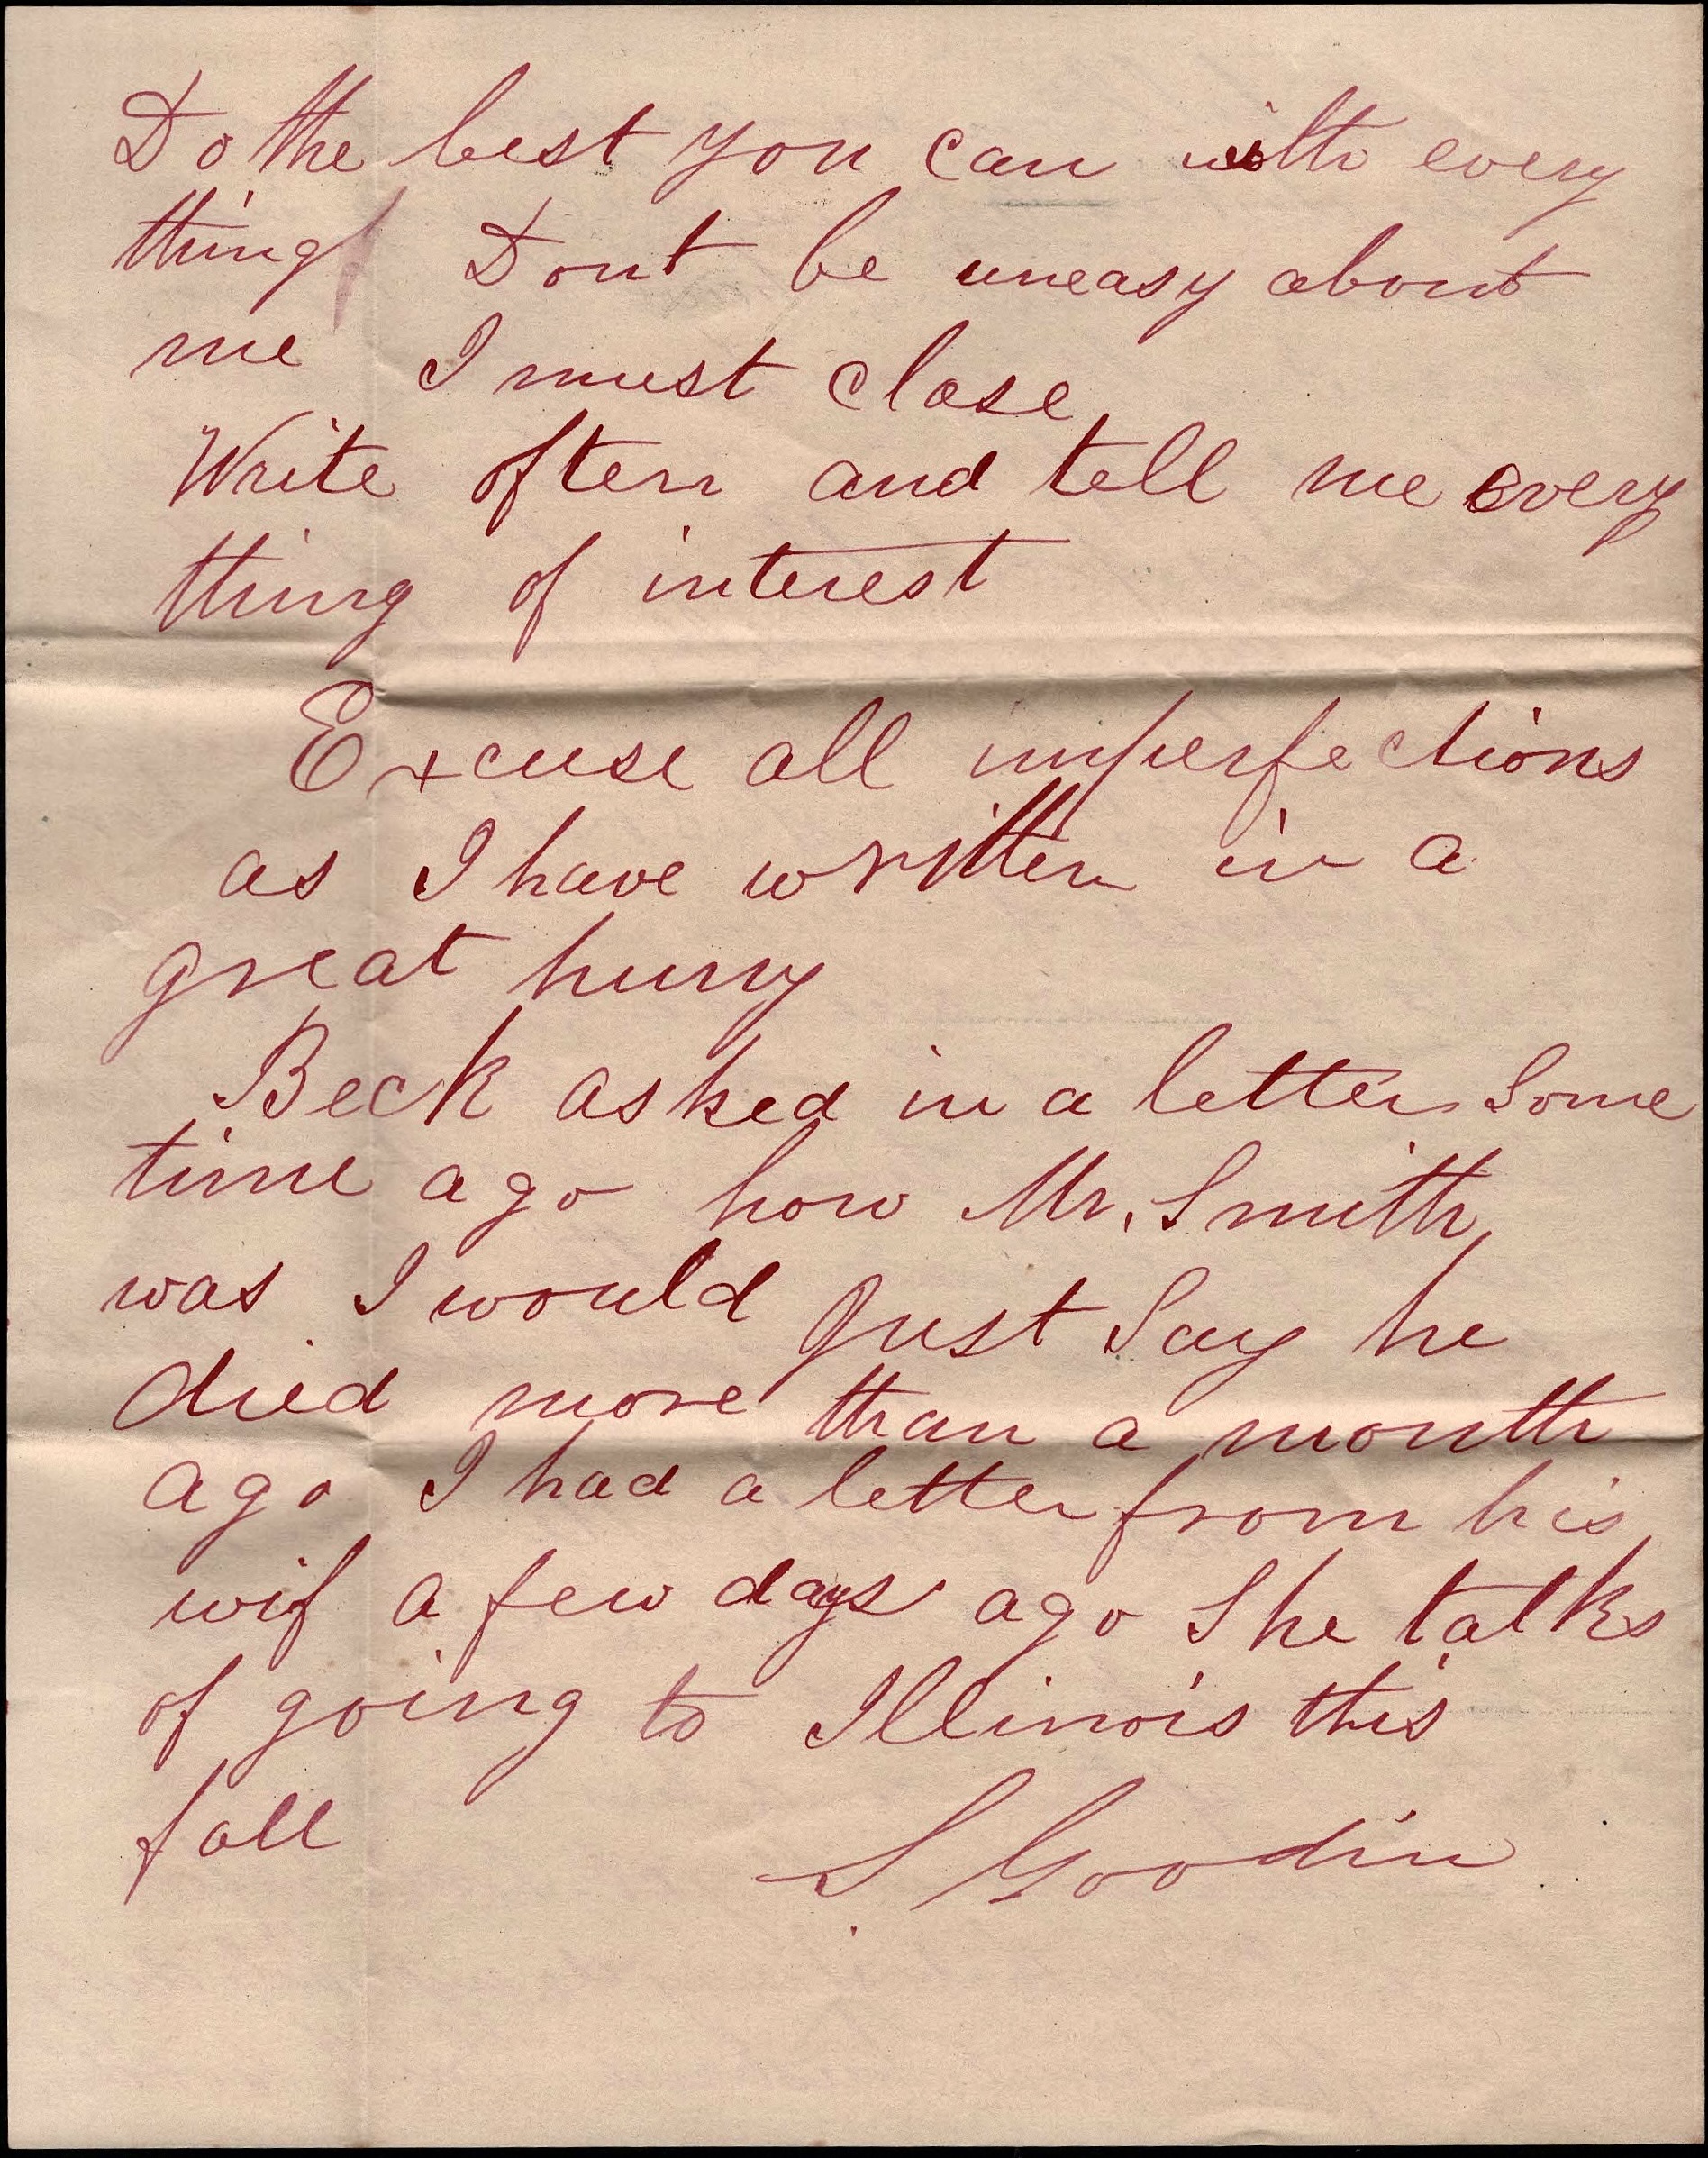 Do the best you can with every
thing Dont be uneasy about
me I must close
Write often and tell me every
thing of interest
Excuse all imperfections
as I have written in a
great hurry
Beck asked in a letter Some
time ago how Mr. Smith
was I would Just Say he
died more than a month
ago I had a letter from his
wif a few days ago She talks
of going to Illinois this
fall
S Goodin